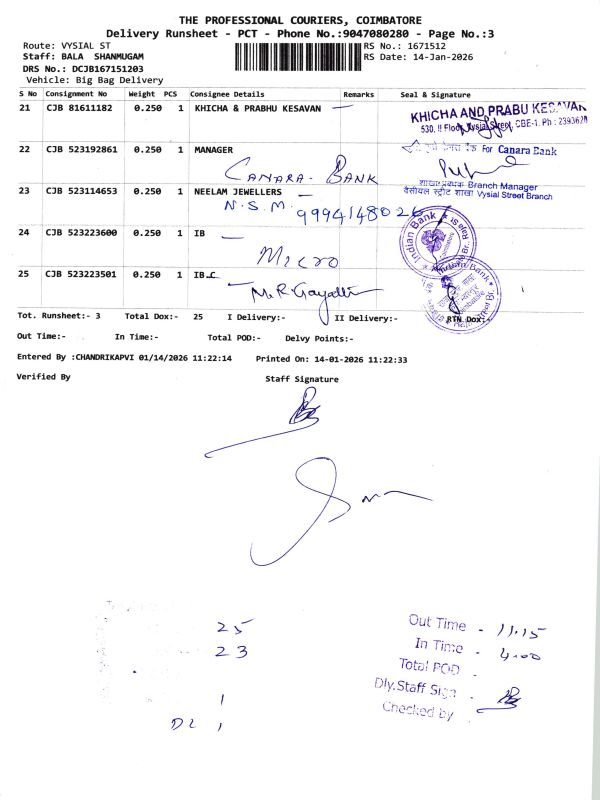 THE PROFESSIONAL COURIERS, COIMBATORE
Delivery Runsheet - PCT - Phone No.:9047080280 - Page No.:3
Route: VYSIAL ST
RS No.: 1671512
Staff: BALA SHANMUGAM
RS Date: 14-Jan-2026
DRS No.: DCJB167151203
Vehicle: Big Bag Delivery
S No Consignment No Weight PCS Consignee Details Remarks Seal & Signature
21 CJB 81611182 0.250 1 KHICHA & PRABHU KESAVAN
KHICHA AND PRABU KESAVAN
530, II Floor, Vysial Street, CBE-1. Ph : 2393620
22 CJB 523192861 0.250 1 MANAGER
For Canara Bank
CANARA BANK
शाखा प्रबंधक Branch Manager
वैसीयल स्ट्रीट शाखा Vysial Street Branch
23 CJB 523114653 0.250 1 NEELAM JEWELLERS
N.S.M. 9994148026
Indian Bank
24 CJB 523223600 0.250 1 IB
Micro
25 CJB 523223501 0.250 1 IB.C
M.R Gayathri
Tot. Runsheet:- 3 Total Dox:- 25 I Delivery:- II Delivery:- RTN Dox:-
Out Time:- In Time:- Total POD:- Delvy Points:-
Entered By :CHANDRIKAPVI 01/14/2026 11:22:14 Printed On: 14-01-2026 11:22:33
Verified By Staff Signature
25
23
1
DL 1
Out Time - 11.15
In Time - 4.00
Total POD -
Dly.Staff Sign -
Checked by